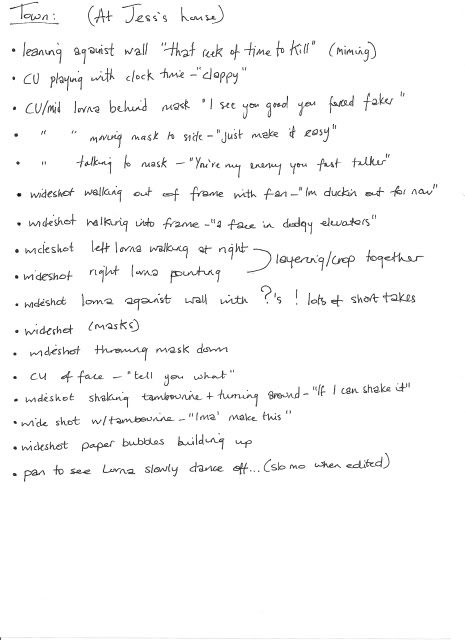 Town: (At Jess's house)
• leaning against wall "that reek of time to kill" (miming)
• CU playing with clock time - "clappy"
• CU/mid lorna behind mask "I see you good you faced faker"
• " " moving mask to side - "Just make it easy"
• " talking to mask - "You're my enemy you fast talker"
• wideshot walking out of frame with fan - "Im duckin out for now"
• wideshot walking into frame - "a face in dodgy elevators"
• wideshot left lorna walking at right
• wideshot right lorna pointing
layering/crop together
• wideshot lorna against wall with ?'s ! lots of short takes
• wideshot (masks)
• wideshot throwing mask down
• CU of face - "tell you what"
• wideshot shaking tambourine + turning around - "If I can shake it"
• wide shot w/tambourine - "Ima' make this"
• wideshot paper bubbles building up
• pan to see Lorna slowly dance off... (slo mo when edited)